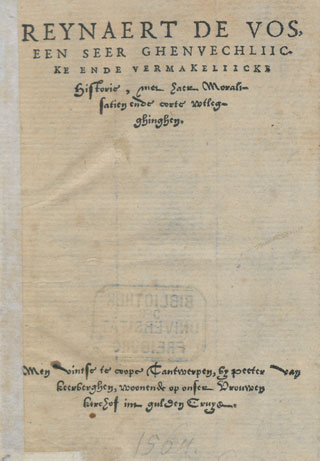 REYNAERT DE VOS,
EEN SEER GHENVECHLIIC-
KE ENDE VERMAKELIICKE
Historie, met haer Morali-
satien ende corte wtleg-
ghinghen.
BIBLIOTHEK
DER
UNIVERSITÄT
FREIBURG
Men vintse te coope Tantwerpen, by peeter van
keerberghen, woonende op onser Vrouwen
kerchof im gulden Cruys.